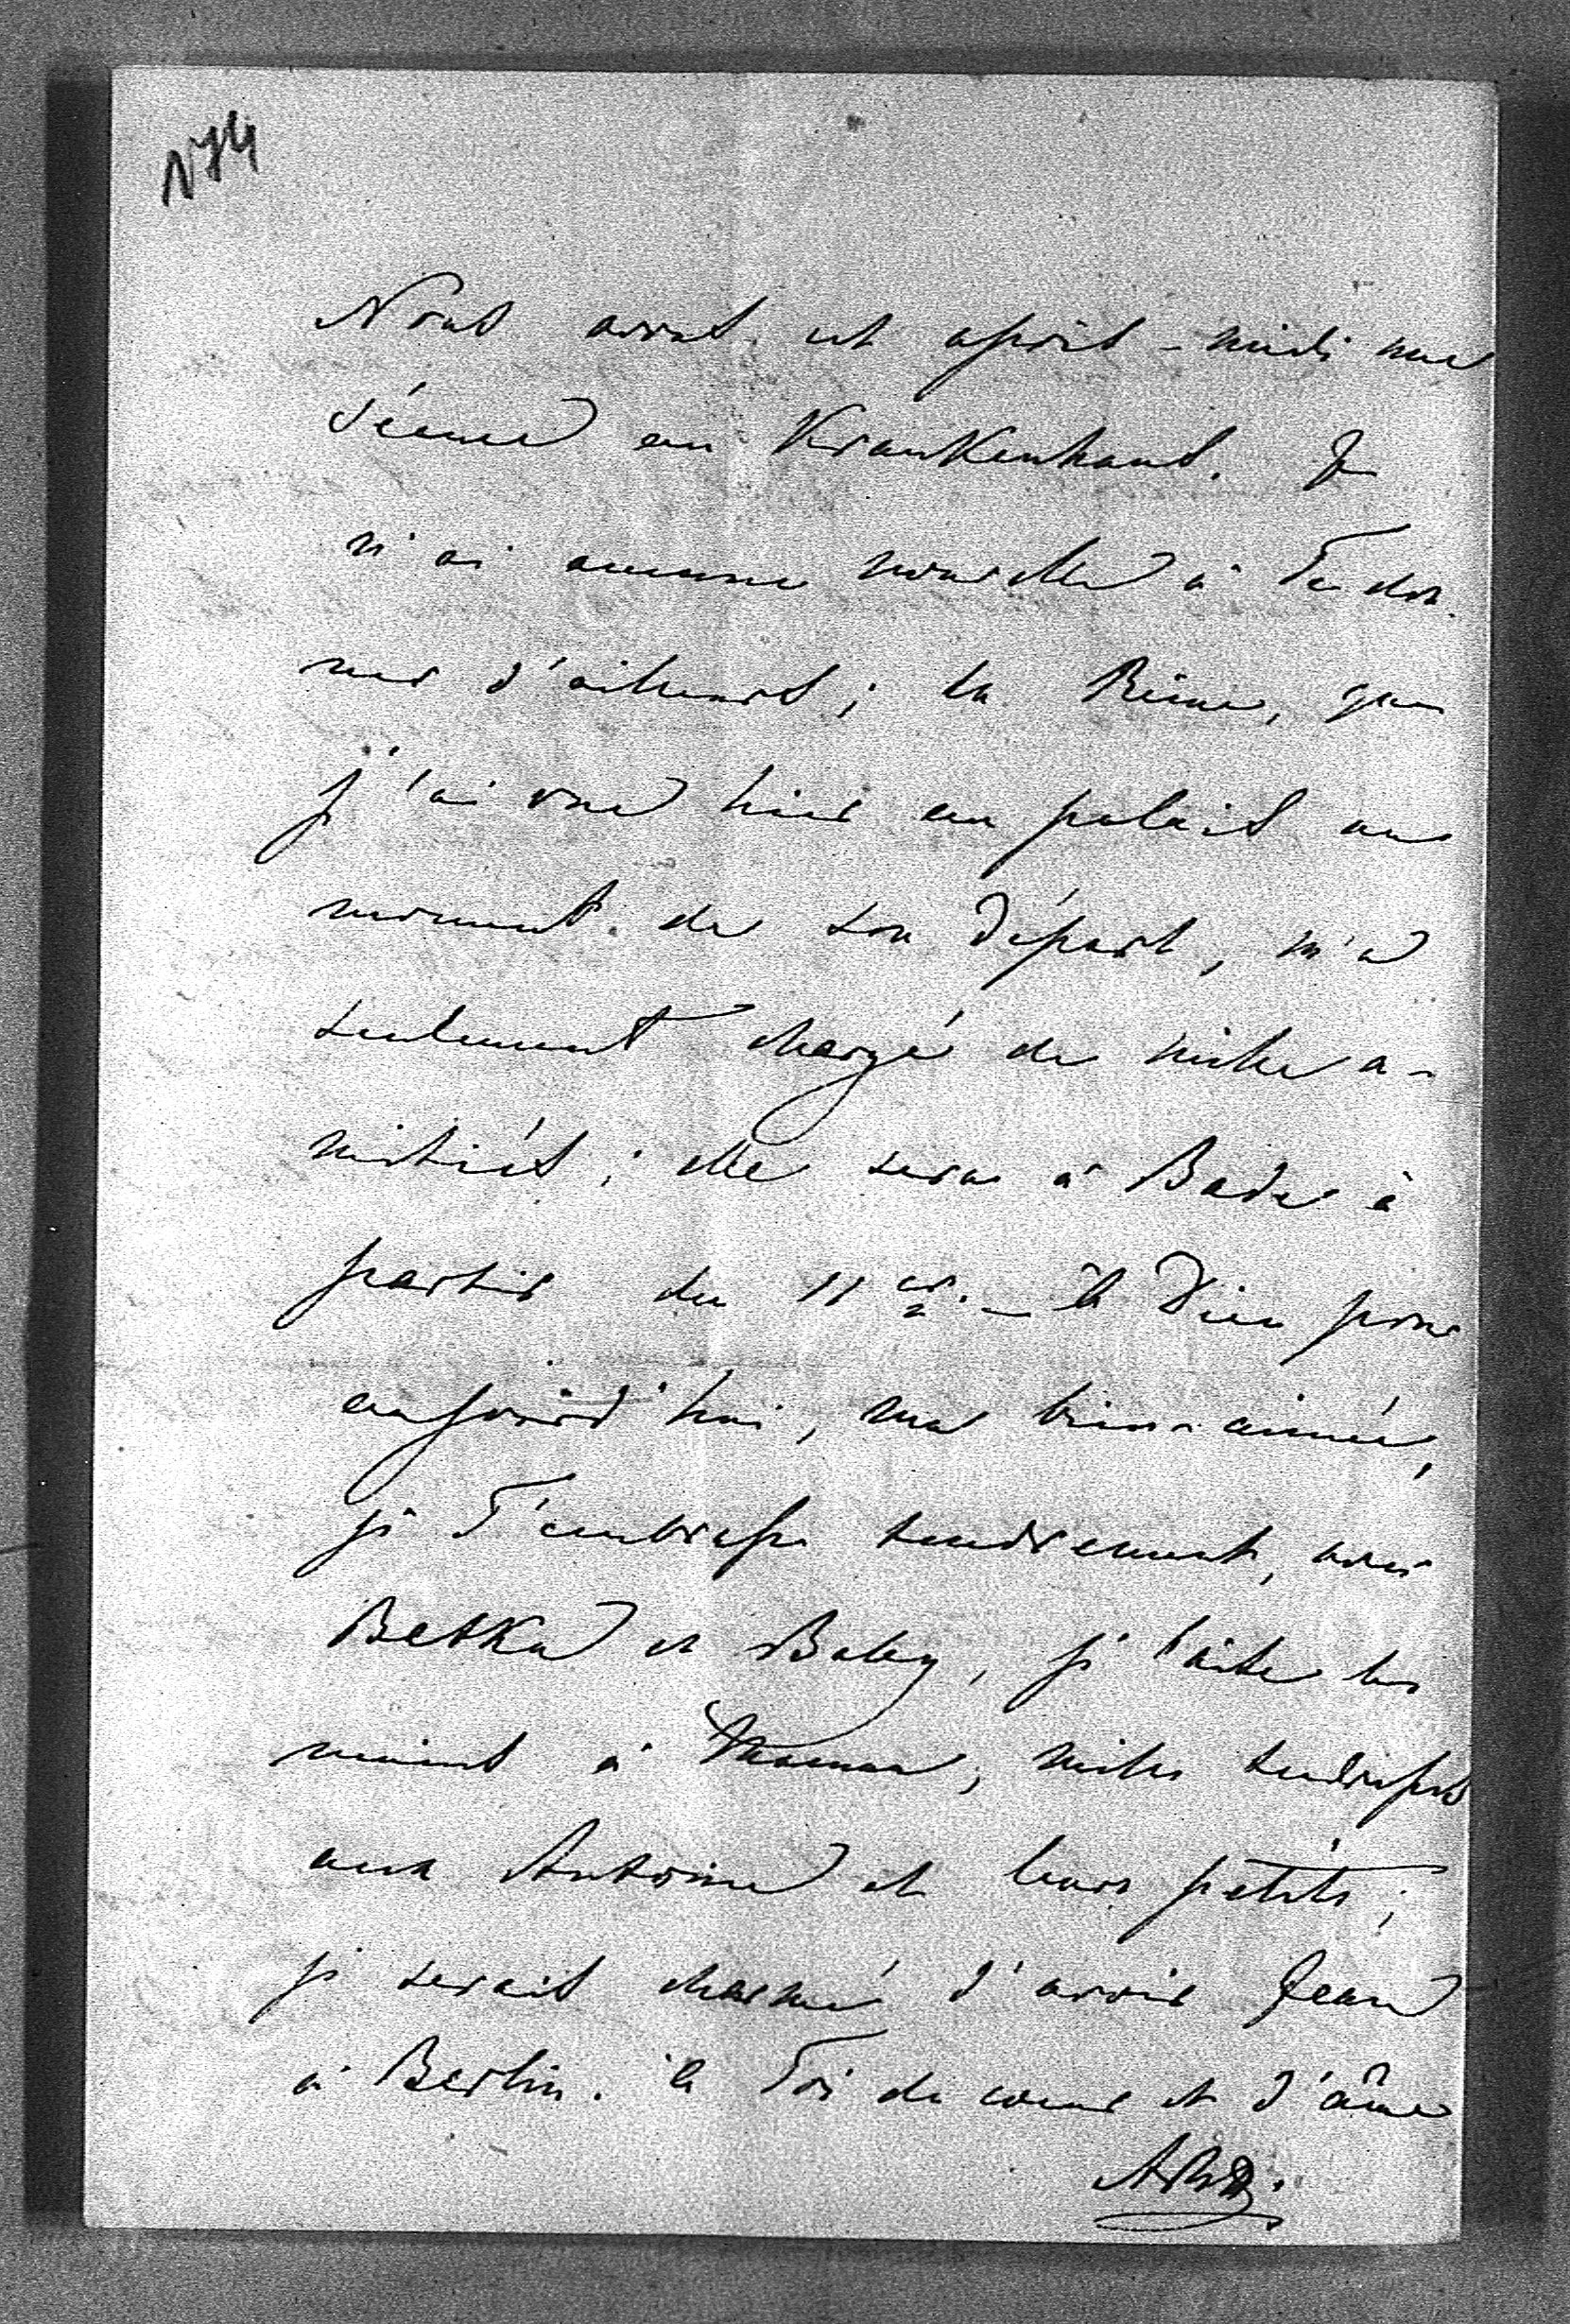 174
Nous avons cet après-midi une
séance au Krankenhaus. Je
n'ai aucune nouvelle à Te don-
ner d'ailleurs; la Reine, que
j'ai vue hier au palais au
moment de son départ, m'a
seulement chargé de mille a-
mitiés; elle sera à Bade à
partir du 11 cr. – A Dieu pour
aujourd'hui, ma bien-aimée,
je T'embrasse tendrement, avec
Betka et Baby, je baise les
mains à Maman, milles tendresses
aux Antoine et leurs petits;
je serais charmé d'avoir Jean
à Berlin. à Toi de coeur et d'âme